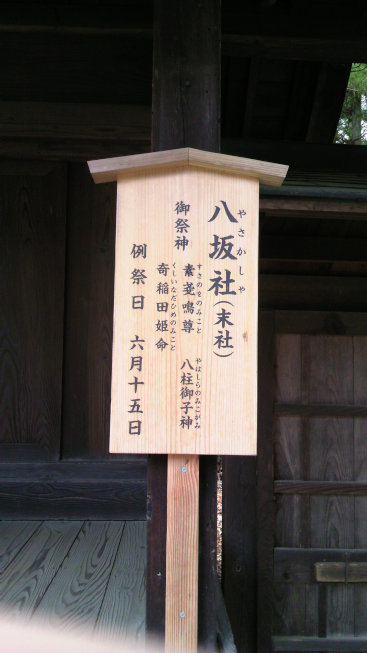 八坂社(末社)
やさかしゃ
御祭神 素戔嗚尊 八柱御子神
すさのをのみこと やはしらのみこがみ
奇稲田姫命
くしいなだひめのみこと
例祭日 六月十五日